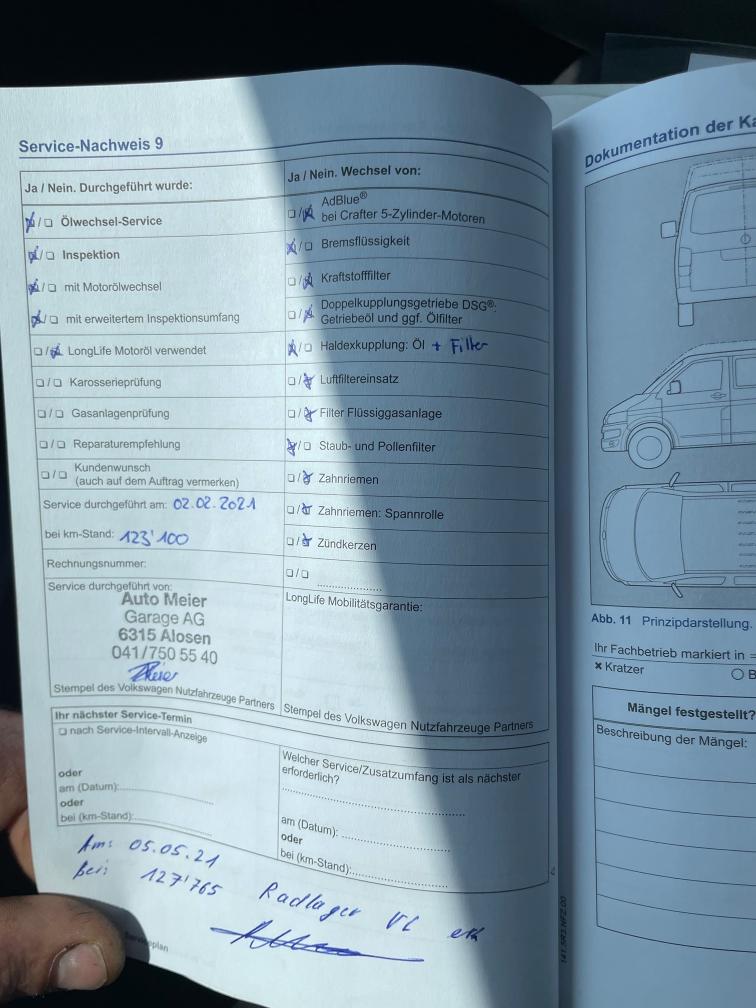 Service-Nachweis 9
Ja / Nein. Durchgeführt wurde:
☒/☐ Ölwechsel-Service
☒/☐ Inspektion
☒/☐ mit Motorölwechsel
☒/☐ mit erweitertem Inspektionsumfang
☐/☒ LongLife Motoröl verwendet
☐/☐ Karosserieprüfung
☐/☐ Gasanlagenprüfung
☐/☐ Reparaturempfehlung
☐/☐ Kundenwunsch
(auch auf dem Auftrag vermerken)
Service durchgeführt am: 02.02.2021
bei km-Stand: 123'100
Rechnungsnummer:
Service durchgeführt von:
Auto Meier
Garage AG
6315 Alosen
041/750 55 40
Stempel des Volkswagen Nutzfahrzeuge Partners
Ja / Nein. Wechsel von:
☐/☒ AdBlue®
bei Crafter 5-Zylinder-Motoren
☒/☐ Bremsflüssigkeit
☐/☒ Kraftstofffilter
☐/☒ Doppelkupplungsgetriebe DSG®:
Getriebeöl und ggf. Ölfilter
☒/☐ Haldexkupplung: Öl + Filter
☐/☒ Luftfiltereinsatz
☐/☒ Filter Flüssiggasanlage
☒/☐ Staub- und Pollenfilter
☐/☒ Zahnriemen
☐/☒ Zahnriemen: Spannrolle
☐/☒ Zündkerzen
☐/☐ ....................
LongLife Mobilitätsgarantie:
Stempel des Volkswagen Nutzfahrzeuge Partners
Ihr nächster Service-Termin
☐ nach Service-Intervall-Anzeige
oder
am (Datum):....................
oder
bei (km-Stand):....................
Welcher Service/Zusatzumfang ist als nächster
erforderlich?
am (Datum): ....................
oder
bei (km-Stand):....................
Am: 05.05.21
Bei: 127'765 Radlager VL
Serviceplan
141.5R3.NFZ.00
Dokumentation der Ka
Abb. 11 Prinzipdarstellung.
Ihr Fachbetrieb markiert in =
× Kratzer
○ B
Mängel festgestellt?
Beschreibung der Mängel: